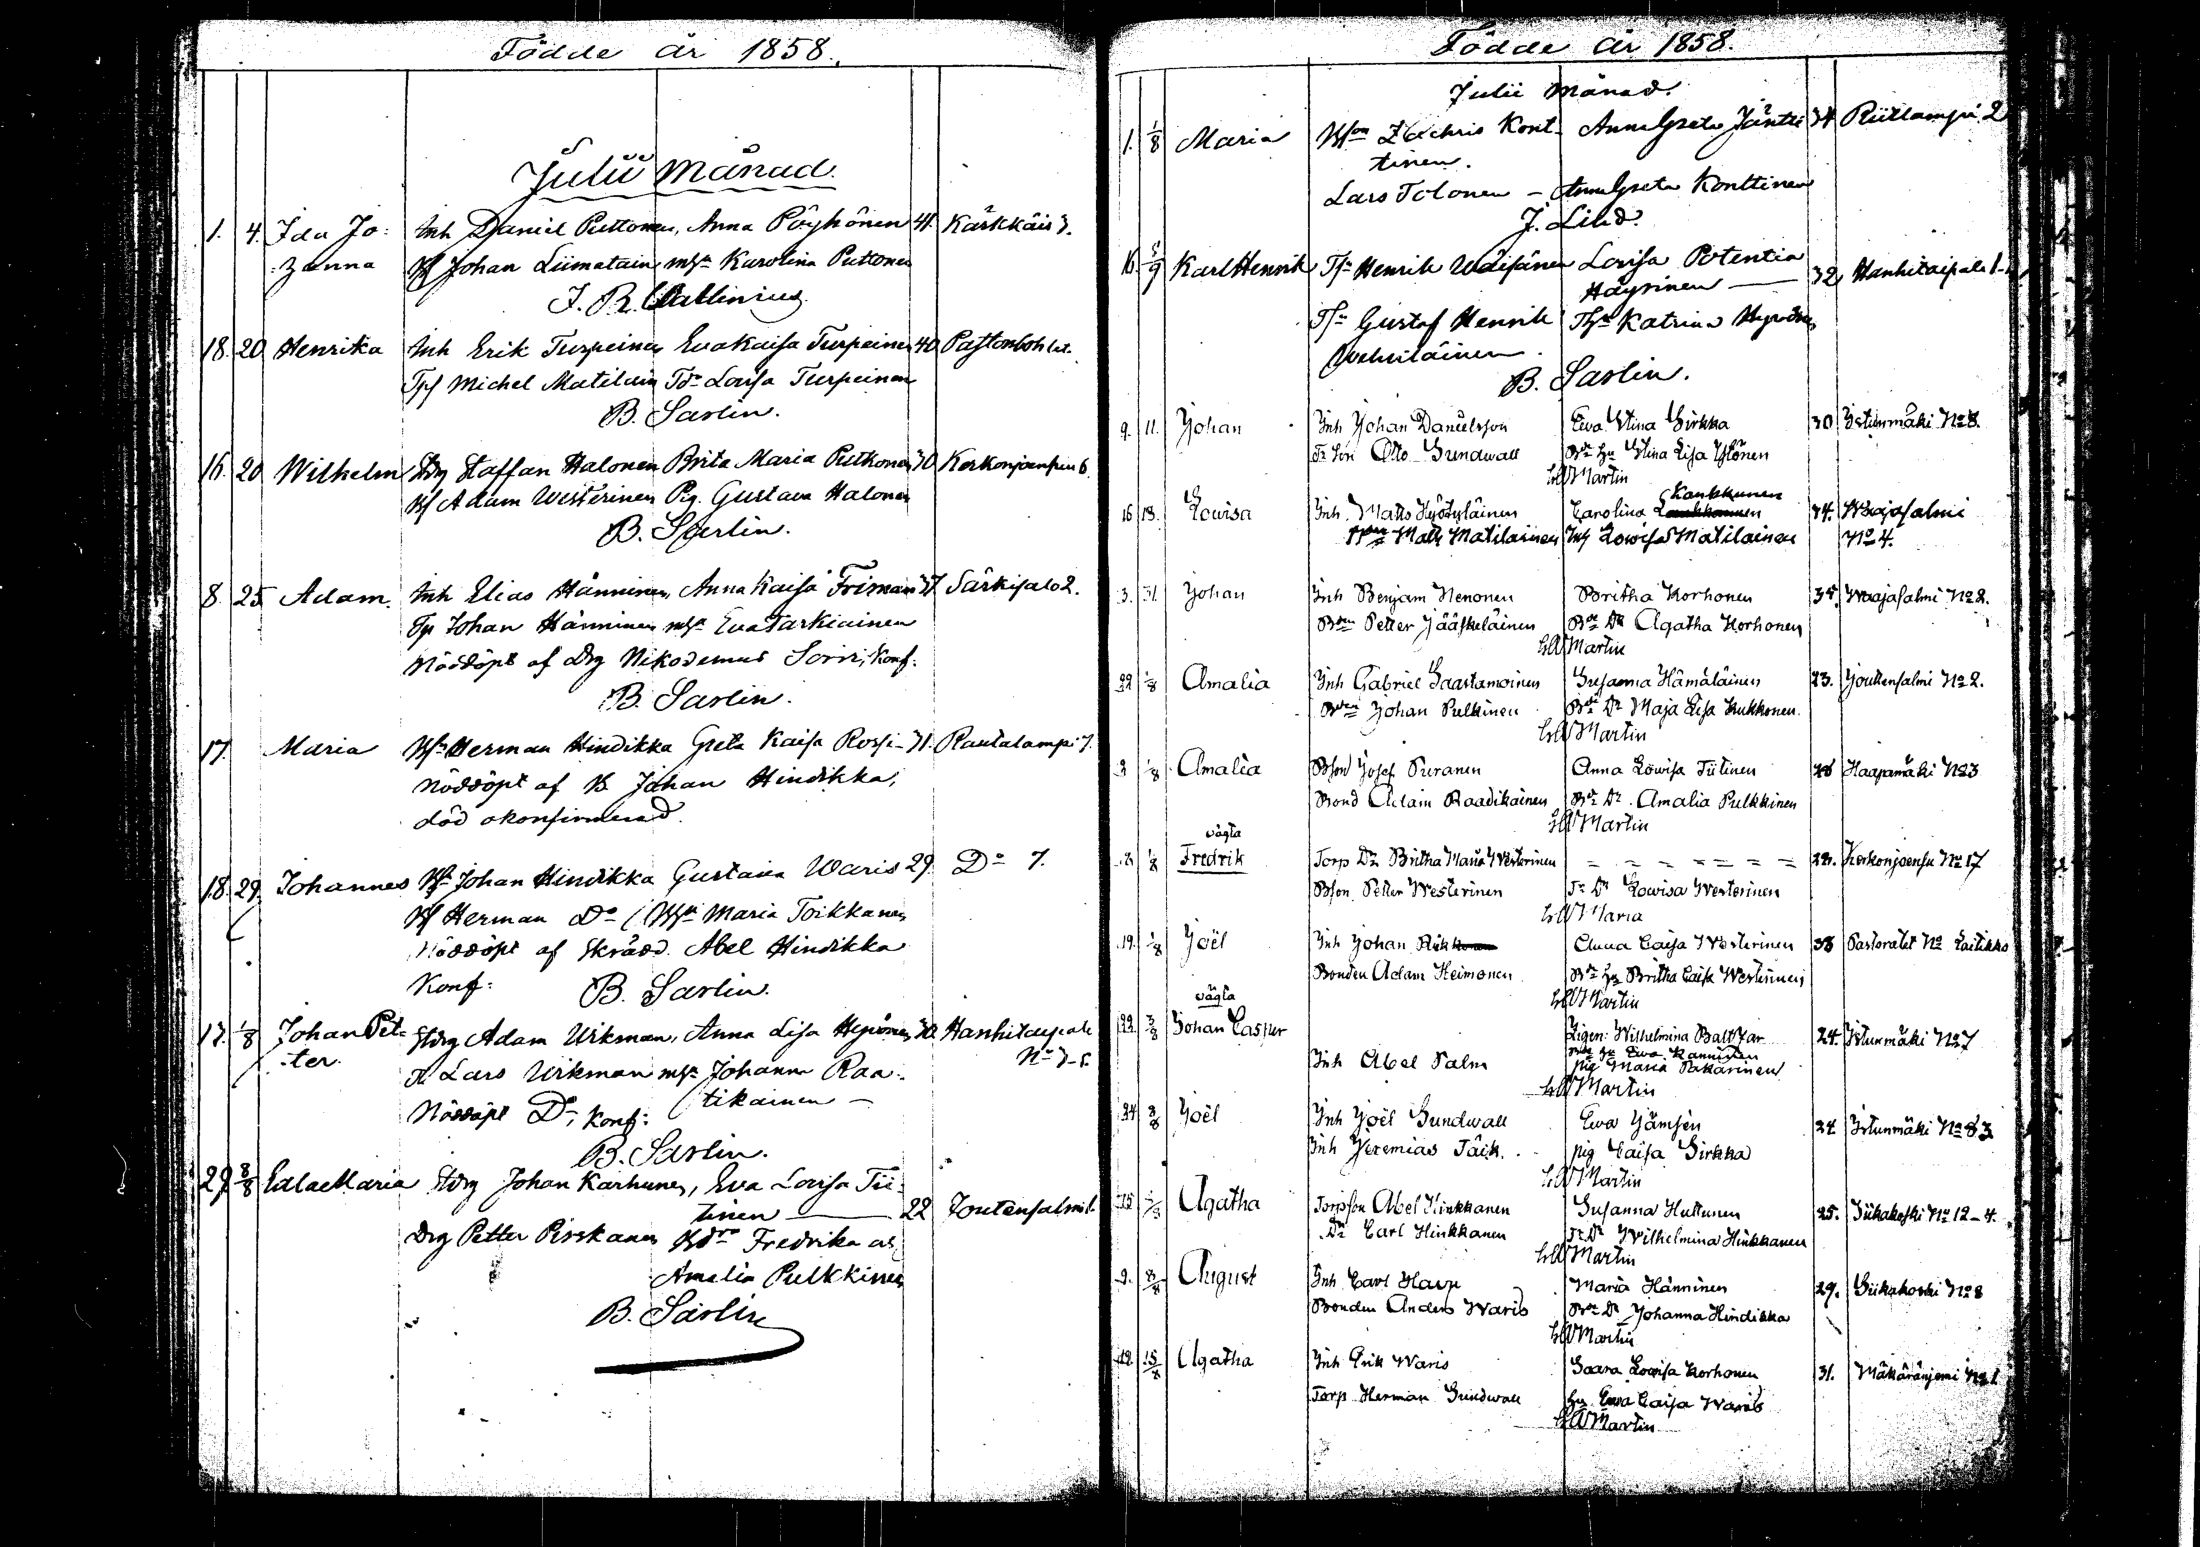 Födde År 1858.
Julii Månad.
1. 4. Ida Jo= Inh Daniel Puttonen, Anna Pöyhönen 41. Kärkkäis 3.
=zanna Bf Johan Liimatain mhn Karolina Puttonen
J. R. Wallinius
18. 20 Henrika Inh Erik Turpeinen Eva Kaisa Turpeinen 40 Pastorsbohlet.
Tpf Michel Matilain Tdr Lovisa Turpeinen
B. Sarlin.
16. 20 Wilhelm Drg Staffan Halonen Brita Maria Puttonen 30 Kerkonjoensuu 6
Bf Adam Westerinen Pig. Gustava Halonen
B. Sarlin.
8. 25 Adam. Inh Elias Hänninen, Anna Kaisa Friman 37. Särkisalo 2.
Tp Johan Hänninen mhn Eva Tarkiainen
Nöddöpt af Drg Nikodemus Sorri, Konf:
B. Sarlin.
17. Maria Bfn Herman Hindikka Greta Kaisa Rossi 31. Rautalampi 7.
Nöddöpt af B Johan Hindikka,
död okonfirmerad.
18. 29. Johannes Bfn Johan Hindikka Gustava Waris 29. Do 7.
Bf Herman Do Maria Toikkanen
Nöddöpt af Skrädd. Abel Hindikka
Konf: B. Sarlin.
17. 1/8 Johan Pet= Stdrg Adam Wikman, Anna Lisa Hyvönen 30. Hanhitaipale
=ter. Lars Wikman mhn Johanna Raa= No 3-5.
Nöddöpt Do, Konf: tikainen —
B. Sarlin.
29 8/8 Eda Maria Stdrg Johan Karhunen, Eva Lovisa Tii=
tinen — 22 Joutensalmi 1.
Drg Petter Pirskanen Bdr Fredrika
Amalia Pulkkinen
B. Sarlin
Födde År 1858.
Julii Månad.
1. 1/8 Maria Bfon Zachris Kont= Anna Greta Jäntti 34 Riitlampi 2
tinen.
Lars Tolonen — Anna Greta Konttinen
J. Lilid.
16. 5/9 Karl Henrik Tfn Henrik Wäisänen Lovisa Potentia
Häyrinen — 32 Hanhitaipale 1-
Tfn Gustaf Henrik Thu Katrina Hyvönen
Wehviläinen.
B. Sarlin.
9. 11. Johan Inh Johan Danielsson Ewa Stina Sirkka 30 Istunmäki No 8.
Tr Son Otto Sundwall Bde hu Stina Lisa Ylönen
GW Martin
Kankkunen
16 18. Lowisa Inh. Matts Hyötyläinen Carolina 34. Waajasalmi
Matts Matilainen Inh Lowisa Matilainen No 4.
3. 31. Johan Inh Benjam Nenonen Britha Korhonen 35. Waajasalmi No 2.
Bden Petter Jääskeläinen Bde Dr Agatha Korhonen
GW Martin
22 1/8 Amalia Inh Gabriel Saastamoinen Susanna Hämäläinen 23. Joutensalmi No 2.
Bden Johan Pulkinen Bde Dr Maja Lisa Kukkonen.
GW Martin
1/8 Amalia Bson Josef Puranen Anna Lowisa Tiitinen 28 Haapamäki No 3
Bond Adam Raadikainen Bde Dr. Amalia Pulkkinen
GW Martin
oägta
2. 1/8 Fredrik Torp Dr Britha Maria Westerinen = = = = = = = 22. Kerkonjoensu No 17
Bson Petter Westerinen Tr Dr Lowisa Westerinen
GW Maria
19. 1/8 Joël Inh Johan Anna Caisa Westerinen 38 Pastoratet No Laitikko
Bonden Adam Heimonen Bde hu Britha Caisa Westerinen
GW Martin
oägta
22. 3/8 Johan Casper Pigen: Wilhelmina Balttzar 24. Istunmäki No 7
Bde hu Ewa Kanninen
Inh Abel Palm pig Maria Pakarinen
GW Martin
24 8/8 Joël Inh Joël Sundwall Ewa Jämsén 24. Istunmäki No 83
Inh Jeremias Täck. pig Caisa Sirkka
GW Martin
15 Agatha Torpson Abel Hinkkanen Susanna Huttunen 25. Siikakoski No 12-4.
Dr Carl Hinkkanen Tr Dr Wilhelmina Hinkkanen
GW Martin
9. 8/8 August Inh Carl Harp Maria Hänninen 29. Siikakoski No 8
Bonden Anders Waris Bde Dr Johanna Hindikka
GW Martin
12 15/8 Agatha Inh Erik Waris Saara Lowisa Korhonen 31. Mäkäräniemi No 1
Torp Herman Sundwall hu Ewa Caisa Waris
GW Martin